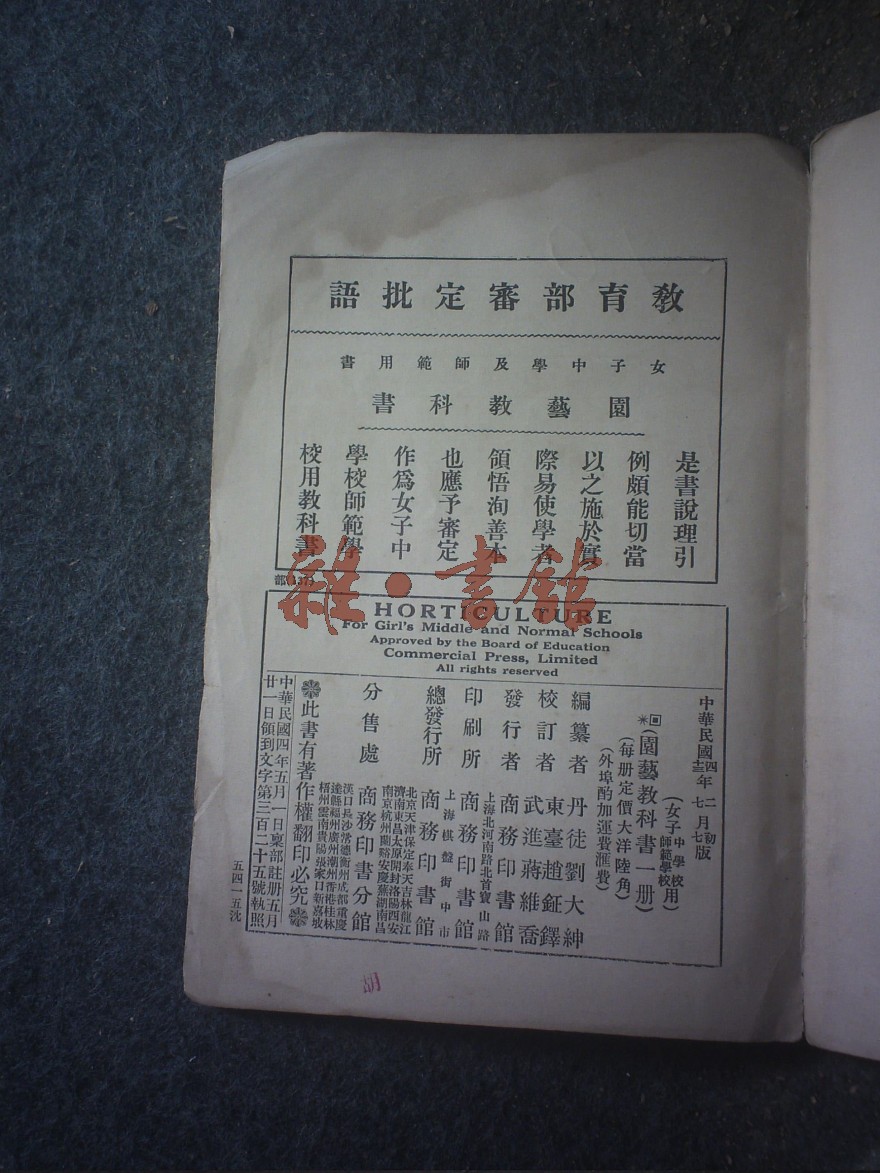 教育部審定批語
女子中學及師範用書
園藝教科書
是書說理引
例頗能切當
以之施於實
際易使學者
領悟洵善本
也應予審定
作爲女子中
學校師範學
校用教科書
雜·書館
HORTICULTURE
For Girl's Middle and Normal Schools
Approved by the Board of Education
Commercial Press, Limited
All rights reserved
(女子中學校用)
師範學校
(園藝教科書一册)
(每册定價大洋陸角)
(外埠酌加運費滙費)
編纂者 丹徒劉大紳
東臺趙鉦鐸
校訂者 武進蔣維喬
發行者 商務印書館
上海北河南路北首寶山路
印刷所 商務印書館
上海棋盤街中市
總發行所 商務印書館
北京天津保定奉天吉林龍江
濟南東昌太原開封洛陽西安
南京杭州蘭谿安慶蕪湖南昌
分售處 商務印書分館
漢口長沙常德衡州成都重慶
達縣福州廣州潮州香港桂林
梧州雲南貴陽張家口新嘉坡
此書有著作權翻印必究
中華民國四年五月一日稟部註册五月
廿一日領到文字第三百二十五號執照
五四一五沈
胡